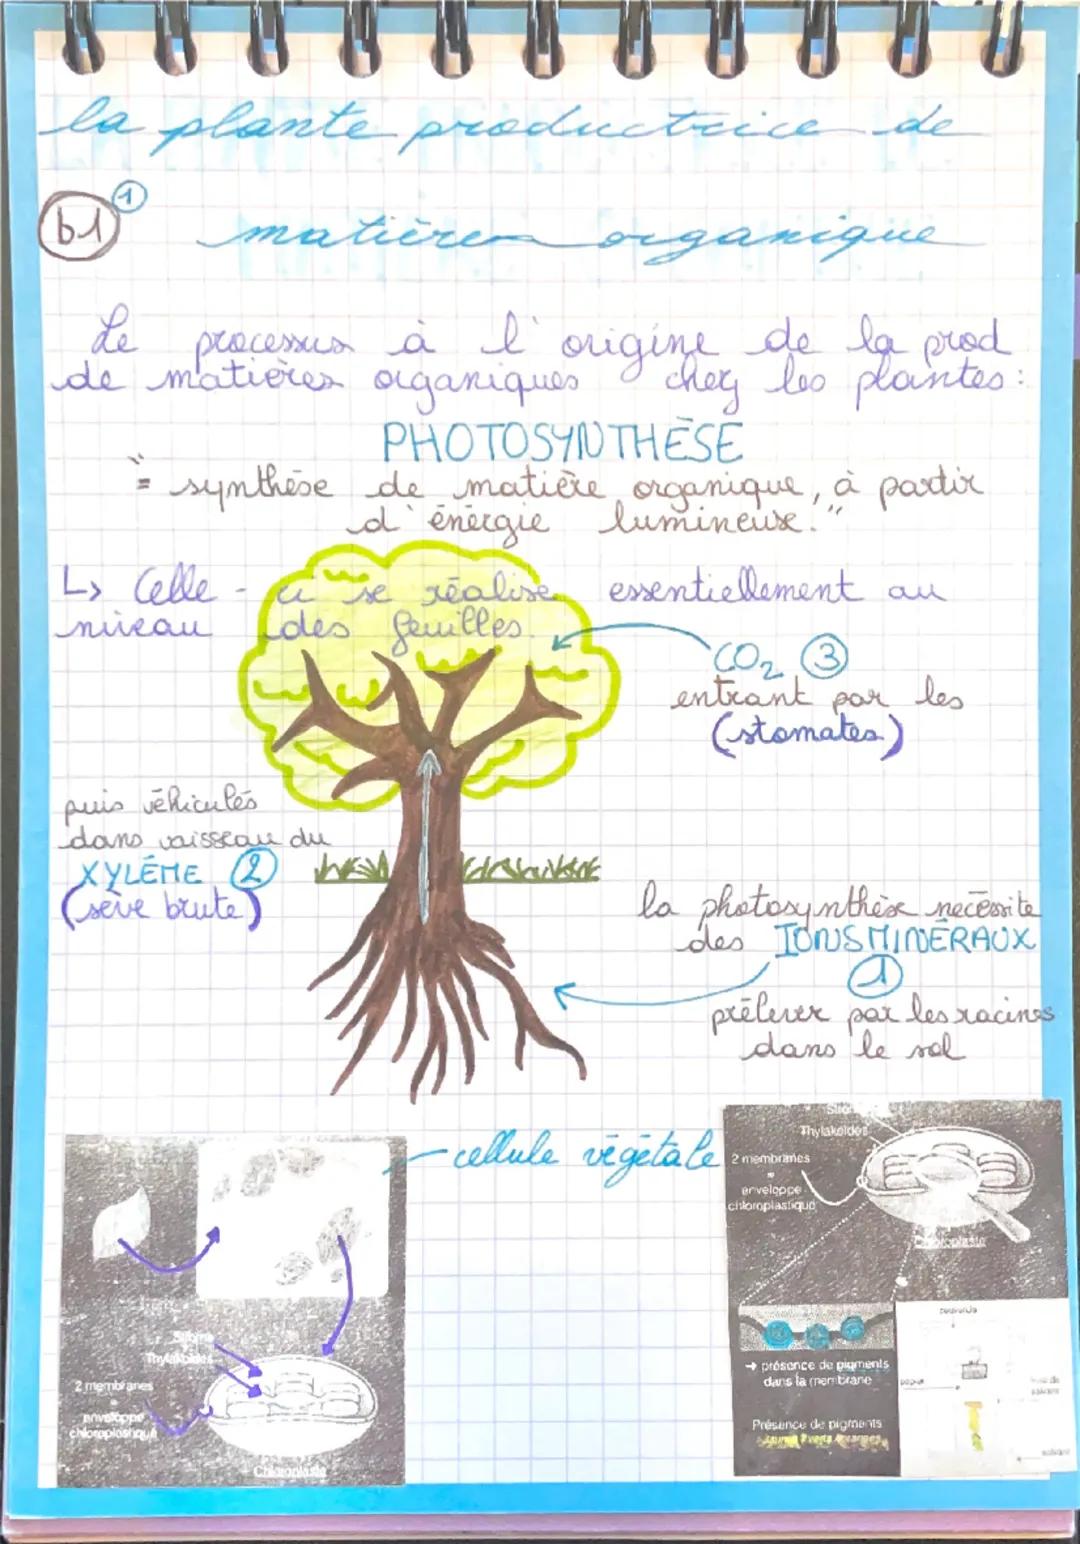 la plante productrice de
b1 1
matières organique
Le processus à l'origine de la prod
de matières organiques chez les plantes :
PHOTOSYNTHÈSE
"= synthèse de matière organique, à partir
d'énergie lumineuse."
↳ Celle-ci se réalise essentiellement au
niveau des feuilles.
CO2 3
entrant par les
(stomates)
puis véhiculés
dans vaisseau du
XYLÉME 2
(sève brute)
la photosynthèse nécessite
des IONS MINÉRAUX
1
prélever par les racines
dans le sol
cellule végétale
Thylakoïdes
2 membranes
=
enveloppe
chloroplastique
Chloroplaste
→ présence de pigments
dans la membrane
Présence de pigments
Stroma
Thylakoïdes
2 membranes
=
enveloppe
chloroplastique
Chloroplaste
papier
solvant